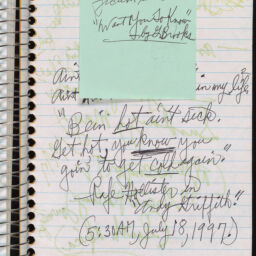 "Want You To Know"
by G. Brooks
ain't
in my life
ain't
"Bein' hot ain't sick.
Get hot, you know you
goin' to get cold again."
— Rafe Hollister in
"Andy Griffith."
(5:30 AM, July 18, 1997.)